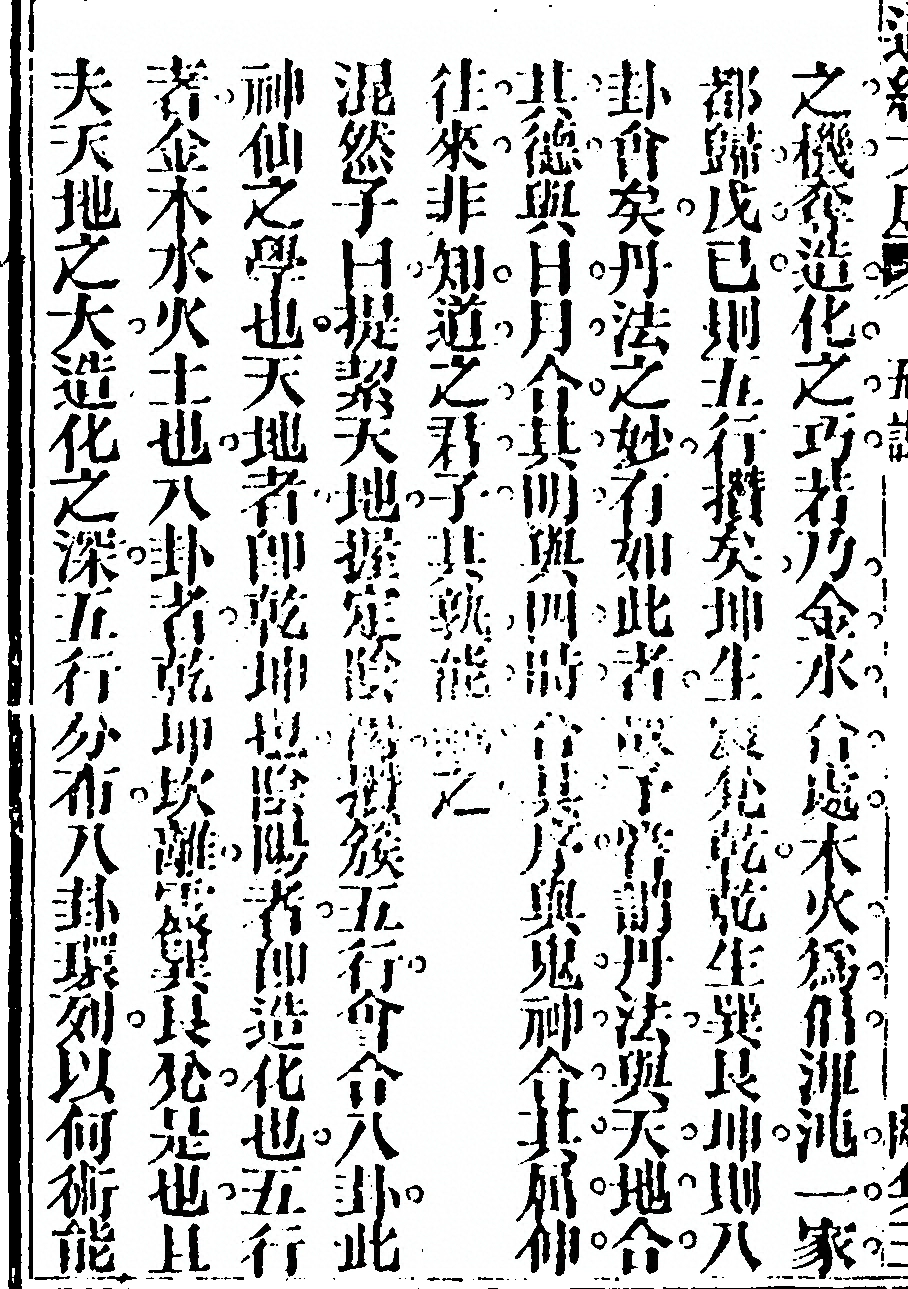 之機奪造化之巧者乃金水合處木火爲侶渾沌一家
都歸戊已則五行攢矣坤生震兌乾乾生巽艮坤則八
卦會矣丹法之妙有如此者 子嘗謂丹法與天地合
其德與日月合其明與四時合其序與鬼神合其屈伸
往來非知道之君子其孰能與之
混然子曰提挈天地握定陰陽攢簇五行會合八卦此
神仙之學也天地者卽乾坤也陰陽者卽造化也五行
者金木水火土也八卦者乾坤坎離震巽艮兌是也且
夫天地之大造化之深五行分布八卦環列以何術能